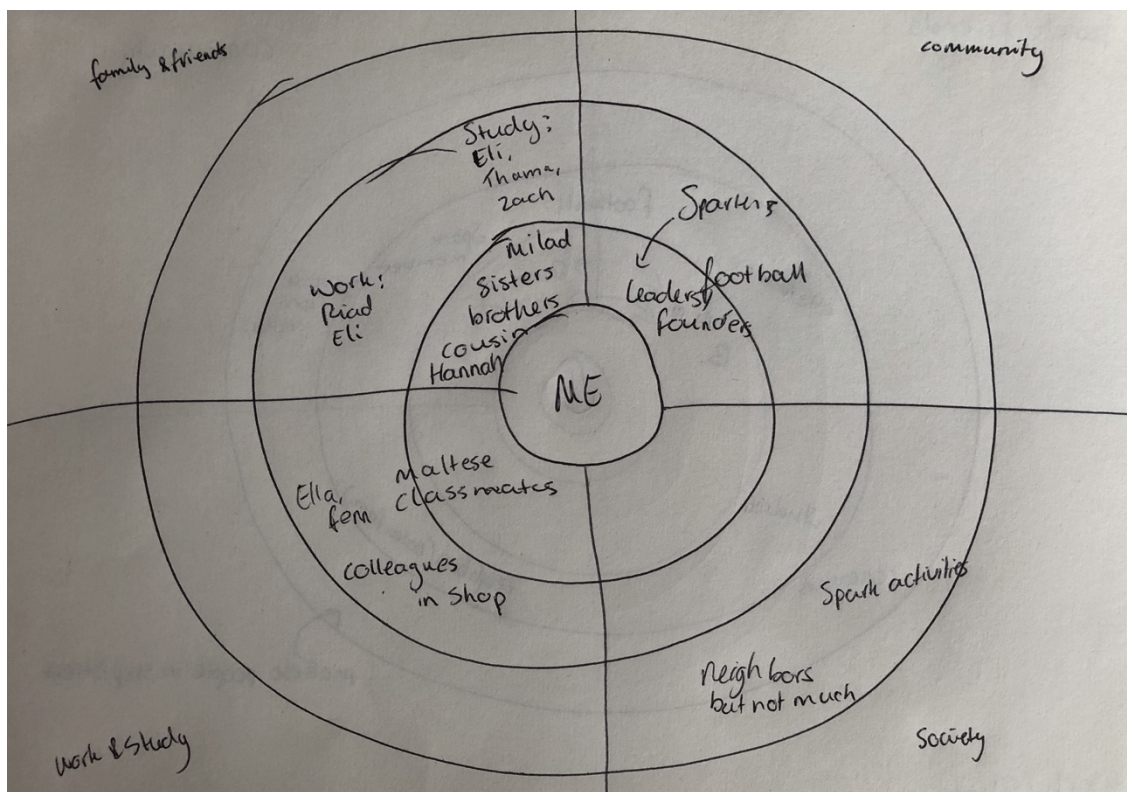 family & friends
community
Study:
Eli,
Thama,
Zach
Milad
sisters
brothers
cousin
Hannah
Work:
Riad
Eli
football
leaders/
founders
ME
maltese
classmates
Ella,
fem
colleagues
in Shop
Spark activities
neighbors
but not much
work & study
Society